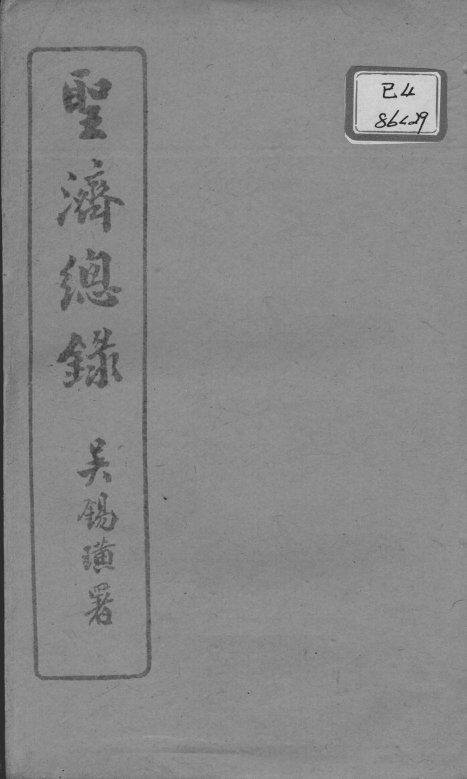 聖濟總錄
吳錫璜署
已4